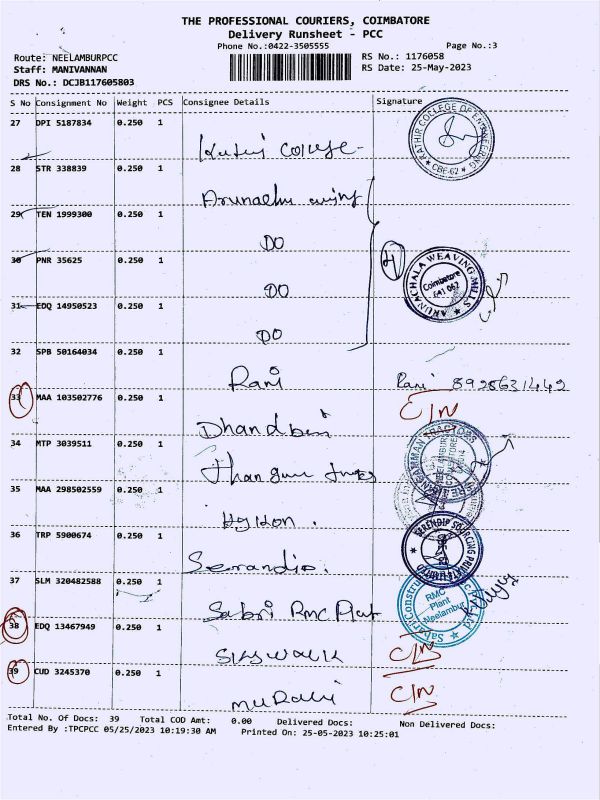 THE PROFESSIONAL COURIERS, COIMBATORE
Delivery Runsheet - PCC
Phone No.:0422-3505555 Page No.:3
Route: NEELAMBURPCC RS No.: 1176058
Staff: MANIVANNAN RS Date: 25-May-2023
DRS No.: DCJB117605803
S No Consignment No Weight PCS Consignee Details Signature
27 DPI 5187834 0.250 1
College
RATHIR COLLEGE OF ENGINEERING
CBE-62
28 STR 338839 0.250 1
29 TEN 1999300 0.250 1
DO
30 PNR 35625 0.250 1
DO
4
ARUNACHALA WEAVING MILLS
Coimbatore
641 062
31 EDQ 14950523 0.250 1
DO
32 SPB 50164034 0.250 1
Rani Rani 8925631442
33 MAA 103502776 0.250 1
C/N
34 MTP 3039511 0.250 1
35 MAA 298502559 0.250 1
36 TRP 5900674 0.250 1
SERENDIP SOURCING PRIVATE LIMITED
37 SLM 320482588 0.250 1
Sabri RMC Plant
RMC
Plant
Neelambur
38 EDQ 13467949 0.250 1
C/N
39 CUD 3245370 0.250 1
C/N
Total No. Of Docs: 39 Total COD Amt: 0.00 Delivered Docs: Non Delivered Docs:
Entered By :TPCPCC 05/25/2023 10:19:30 AM Printed On: 25-05-2023 10:25:01